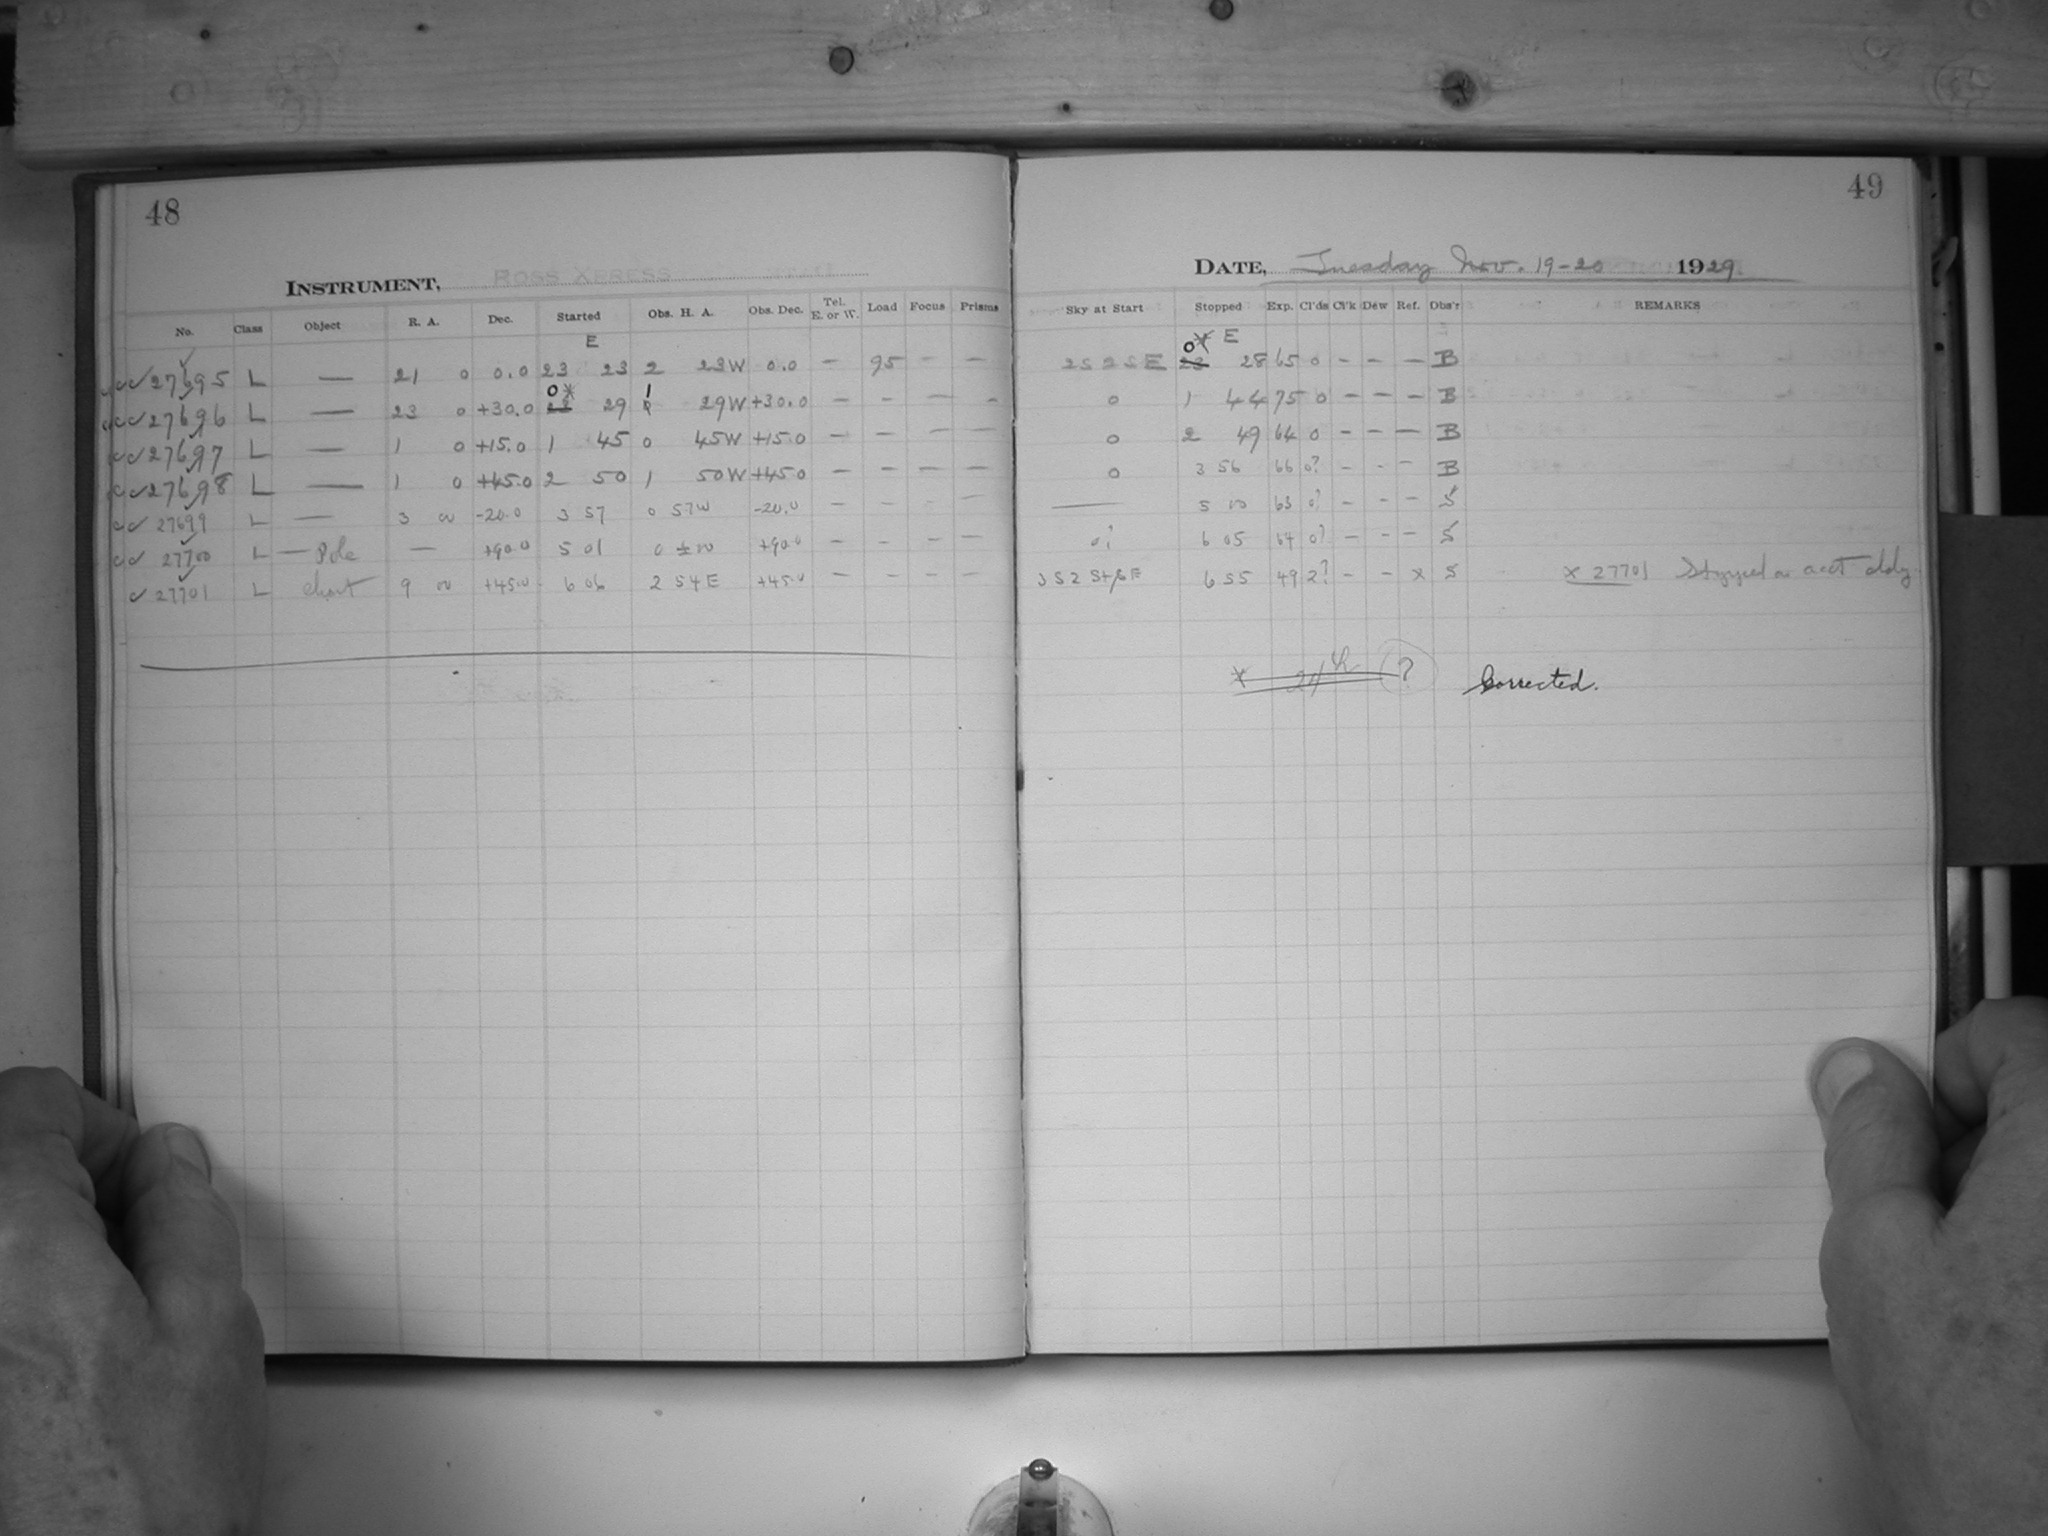 48
INSTRUMENT, ROSS XPRESS
No. Class Object R. A. Dec. Started Obs. H. A. Obs. Dec. Tel. E. or W. Load Focus Prisms
E
✓✓✓27695 L — 21 0 0.0 23 23 2 23W 0.0 — 95 — —
✓✓✓27696 L — 23 0 +30.0 0* 29 1 29W +30.0 — - — -
✓✓27697 L — 1 0 +15.0 1 45 0 45W +15.0 — — — —
✓✓27698 L — 1 0 +45.0 2 50 1 50W +45.0 — — — —
✓✓ 27699 L — 3 00 -20.0 3 57 0 57W -20.0 — — — —
✓✓ 27700 L — Pole — +90.0 5 01 0 ±00 +90.0 — - — —
✓ 27701 L chart 9 00 +45.0 6 06 2 54E +45.0 — — — —
49
DATE, Tuesday Nov. 19-20 1929
Sky at Start Stopped Exp. Cl'ds Cl'k Dew Ref. Obs'r REMARKS
0* E
2S 2SE 23 28 65 0 — — — B
0 1 44 75 0 — — — B
0 2 49 64 0 — — — B
0 3 56 66 0? - - — B
— 5 00 63 0? - - — S
0? 6 05 64 0? — — — S
6 55 49 2? — — x S x 27701 Stopped on acct cldy.
* 24th (?) Corrected.